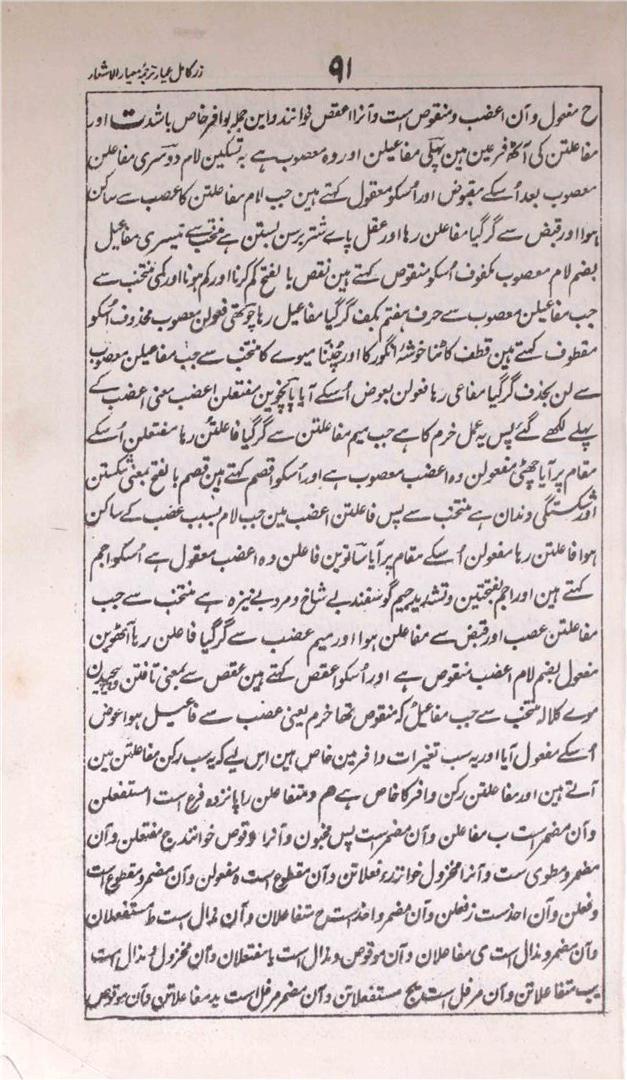 ۹۱
زر کامل عیار ترجمۂ معیار الاشعار
ح مفعول و آن اعضب و منقوص است و آنرا اعقص خوانند و این جملہ بوافر خاص باشدت اور
مفاعلتن کی آٹھ فرعین ہین پہلی مفاعیلن اور وہ معصوب ہے بہ تسکین لام دوسری مفاعلن
معصوب بعد اُسکے مقبوض اور اُسکو معقول کہتے ہین جب لام مفاعلتن کا عصب سے ساکن
ہوا اور قبض سے گر گیا مفاعلن رہا اور عقل پاے شتر برسن بستن ہے منتخب سے تیسری مفاعیل
بضم لام معصوب مکفوف اُسکو منقوص کہتے ہین نقص بالفتح کم کرنا اور کم ہونا اور کمی منتخب سے
جب مفاعیلن معصوب سے حرف ہفتم بکف گر گیا مفاعیل رہا چوتھی فعولن معصوب محذوف اُسکو
مقطوف کہتے ہین قطف کاٹنا خوشۂ انگور کا اور چُننا میوے کا منتخب سے جب مفاعیلن معصوب
سے لن بحذف گر گیا مفاعی رہا فعولن بعوض اُسکے آیا پانچوین مفتعلن اعضب معنی اعضب کے
پہلے لکھے گئے پس یہ عمل خرم کا ہے جب میم مفاعلتن سے گر گیا فاعلتن رہا مفتعلن اُسکے
مقام پر آیا چھٹی مفعولن وہ اعضب معصوب ہے اور اُسکو اقصم کہتے ہین قصم بالفتح بمعنی شکستن
اور شکستگی دندان ہے منتخب سے پس فاعلتن اعضب مین جب لام بسبب عصب کے ساکن
ہوا فاعلتن رہا مفعولن اُسکے مقام پر آیا ساتوین فاعلن وہ اعضب معقول ہے اُسکو اجم
کہتے ہین اور اجم بفتحتین و تشدید جیم گوسفند بے شاخ و مرد بے نیزہ ہے منتخب سے جب
مفاعلتن عصب اور قبض سے مفاعلن ہوا اور میم عضب سے گر گیا فاعلن رہا آٹھوین
مفعول بضم لام اعضب منقوص ہے اور اُسکو اعقص کہتے ہین عقص سے بمعنی تافتن و پیچیدن
موے کلالہ منتخب سے جب مفاعیل کہ منقوص تھا خرم یعنی عضب سے فاعیل ہوا عوض
اُسکے مفعول آیا اور یہ سب تغیرات وافر مین خاص ہین اس لیے کہ یہ سب رکن مفاعلتن مین
آتے ہین اور مفاعلتن رکن وافر کا خاص ہے ھم و متفاعلن را پانزدہ فرع است ا مستفعلن
و آن مضمر است ب مفاعلن و آن مضمر است پس مخبون و آنرا موقوص خوانند ج مفتعلن و آن
مضمر و مطوی ست و آنرا مخزول خوانند د فعلاتن و آن مقطوع است ہ مفعولن و آن مضمر و مقطوع است
و فعلن و آن احذ ست ز فعلن و آن مضمر و احذ است ح متفاعلان و آن مذال است ط مستفعلان
و آن مضمر و مذال است ی مفاعلان و آن موقوص و مذال است یا مفتعلان و آن مخزول و مذال است
یب متفاعلاتن و آن مرفل است یج مستفعلاتن و آن مضمر مرفل است ید مفاعلاتن و آن موقوص